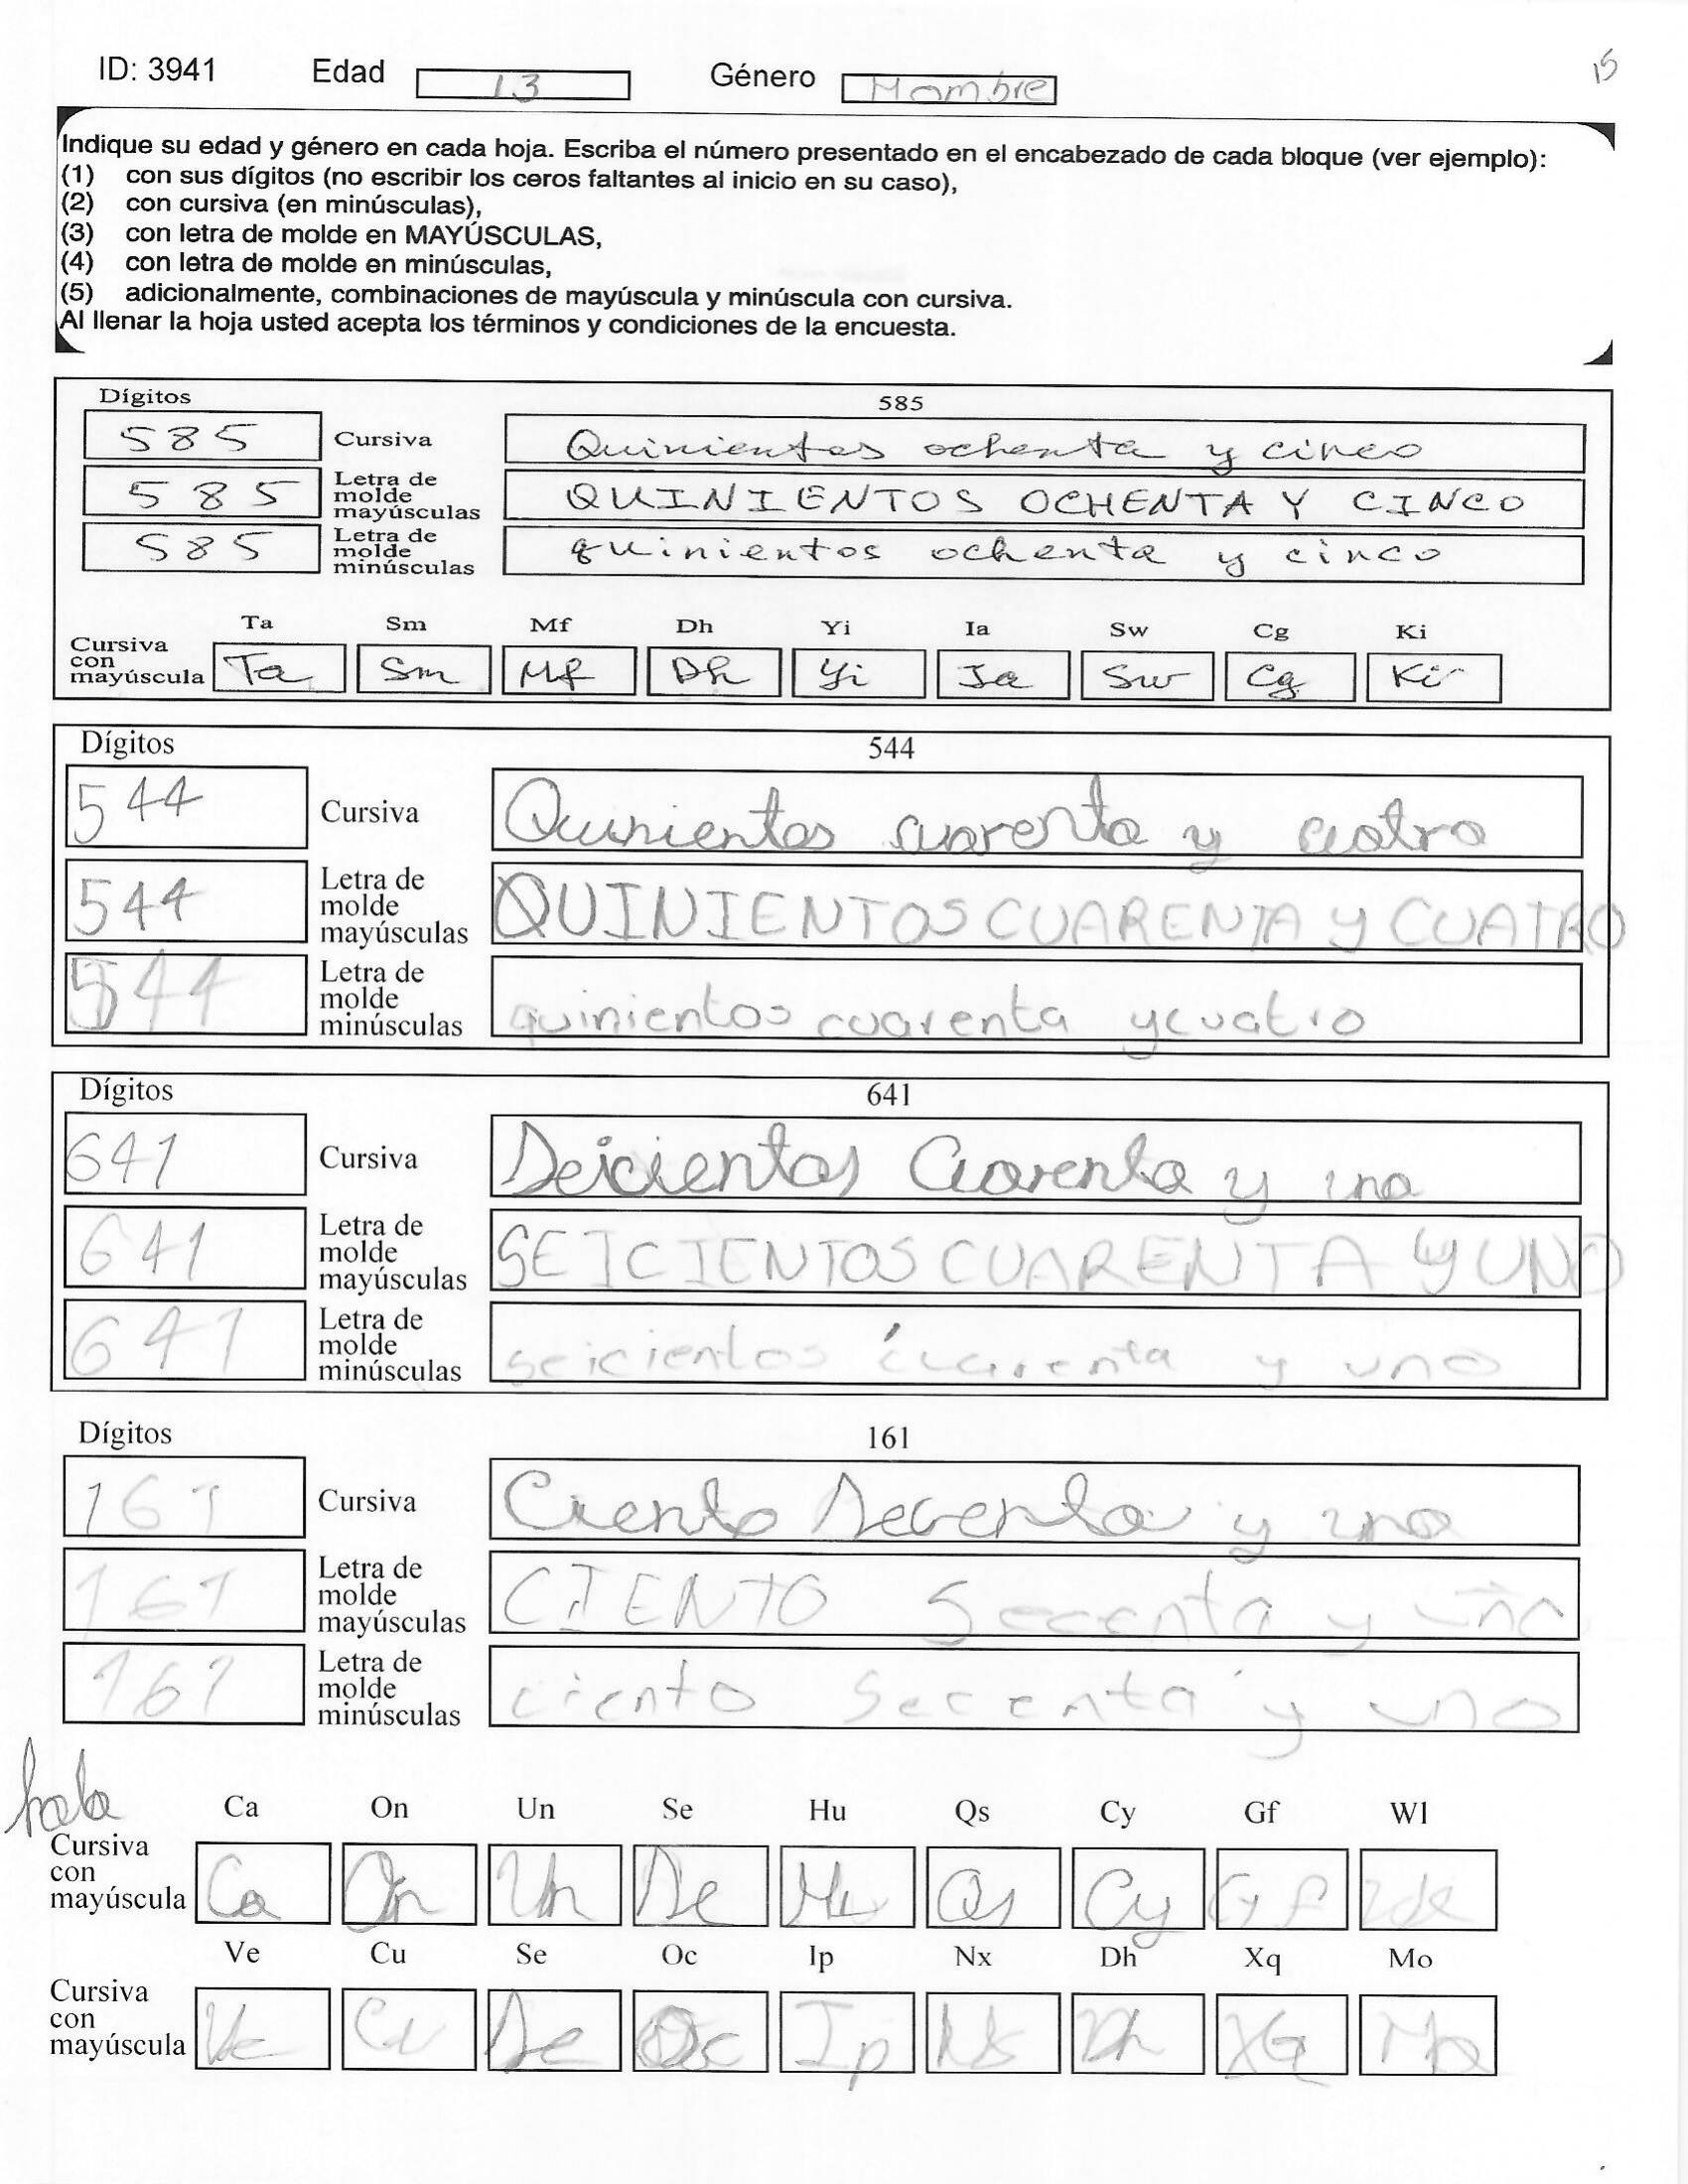 ID: 3941 Edad 13 Género Hombre 15
Indique su edad y género en cada hoja. Escriba el número presentado en el encabezado de cada bloque (ver ejemplo):
(1) con sus dígitos (no escribir los ceros faltantes al inicio en su caso),
(2) con cursiva (en minúsculas),
(3) con letra de molde en MAYÚSCULAS,
(4) con letra de molde en minúsculas,
(5) adicionalmente, combinaciones de mayúscula y minúscula con cursiva.
Al llenar la hoja usted acepta los términos y condiciones de la encuesta.
Dígitos 585
585 Cursiva Quinientos ochenta y cinco
585 Letra de molde mayúsculas QUINIENTOS OCHENTA Y CINCO
585 Letra de molde minúsculas quinientos ochenta y cinco
Ta Sm Mf Dh Yi Ia Sw Cg Ki
Cursiva con mayúscula Ta Sm Mf Dh Yi Ia Sw Cg Ki
Dígitos 544
544 Cursiva Quinientos cuarenta y cuatro
544 Letra de molde mayúsculas QUINIENTOS CUARENTA Y CUATRO
544 Letra de molde minúsculas quinientos cuarenta y cuatro
Dígitos 641
641 Cursiva Seicientos Cuarenta y uno
641 Letra de molde mayúsculas SEICIENTOS CUARENTA Y UNO
641 Letra de molde minúsculas seicientos cuarenta y uno
Dígitos 161
161 Cursiva Ciento Secenta y uno
161 Letra de molde mayúsculas CIENTO Secenta y uno
161 Letra de molde minúsculas ciento Secenta y uno
Ca On Un Se Hu Qs Cy Gf Wl
Cursiva con mayúscula Ca On Un Se Hu Qs Cy Gf
Ve Cu Se Oc Ip Nx Dh Xq Mo
Cursiva con mayúscula Ve Cu Se Oc Ip Nx Dh Xq Mo